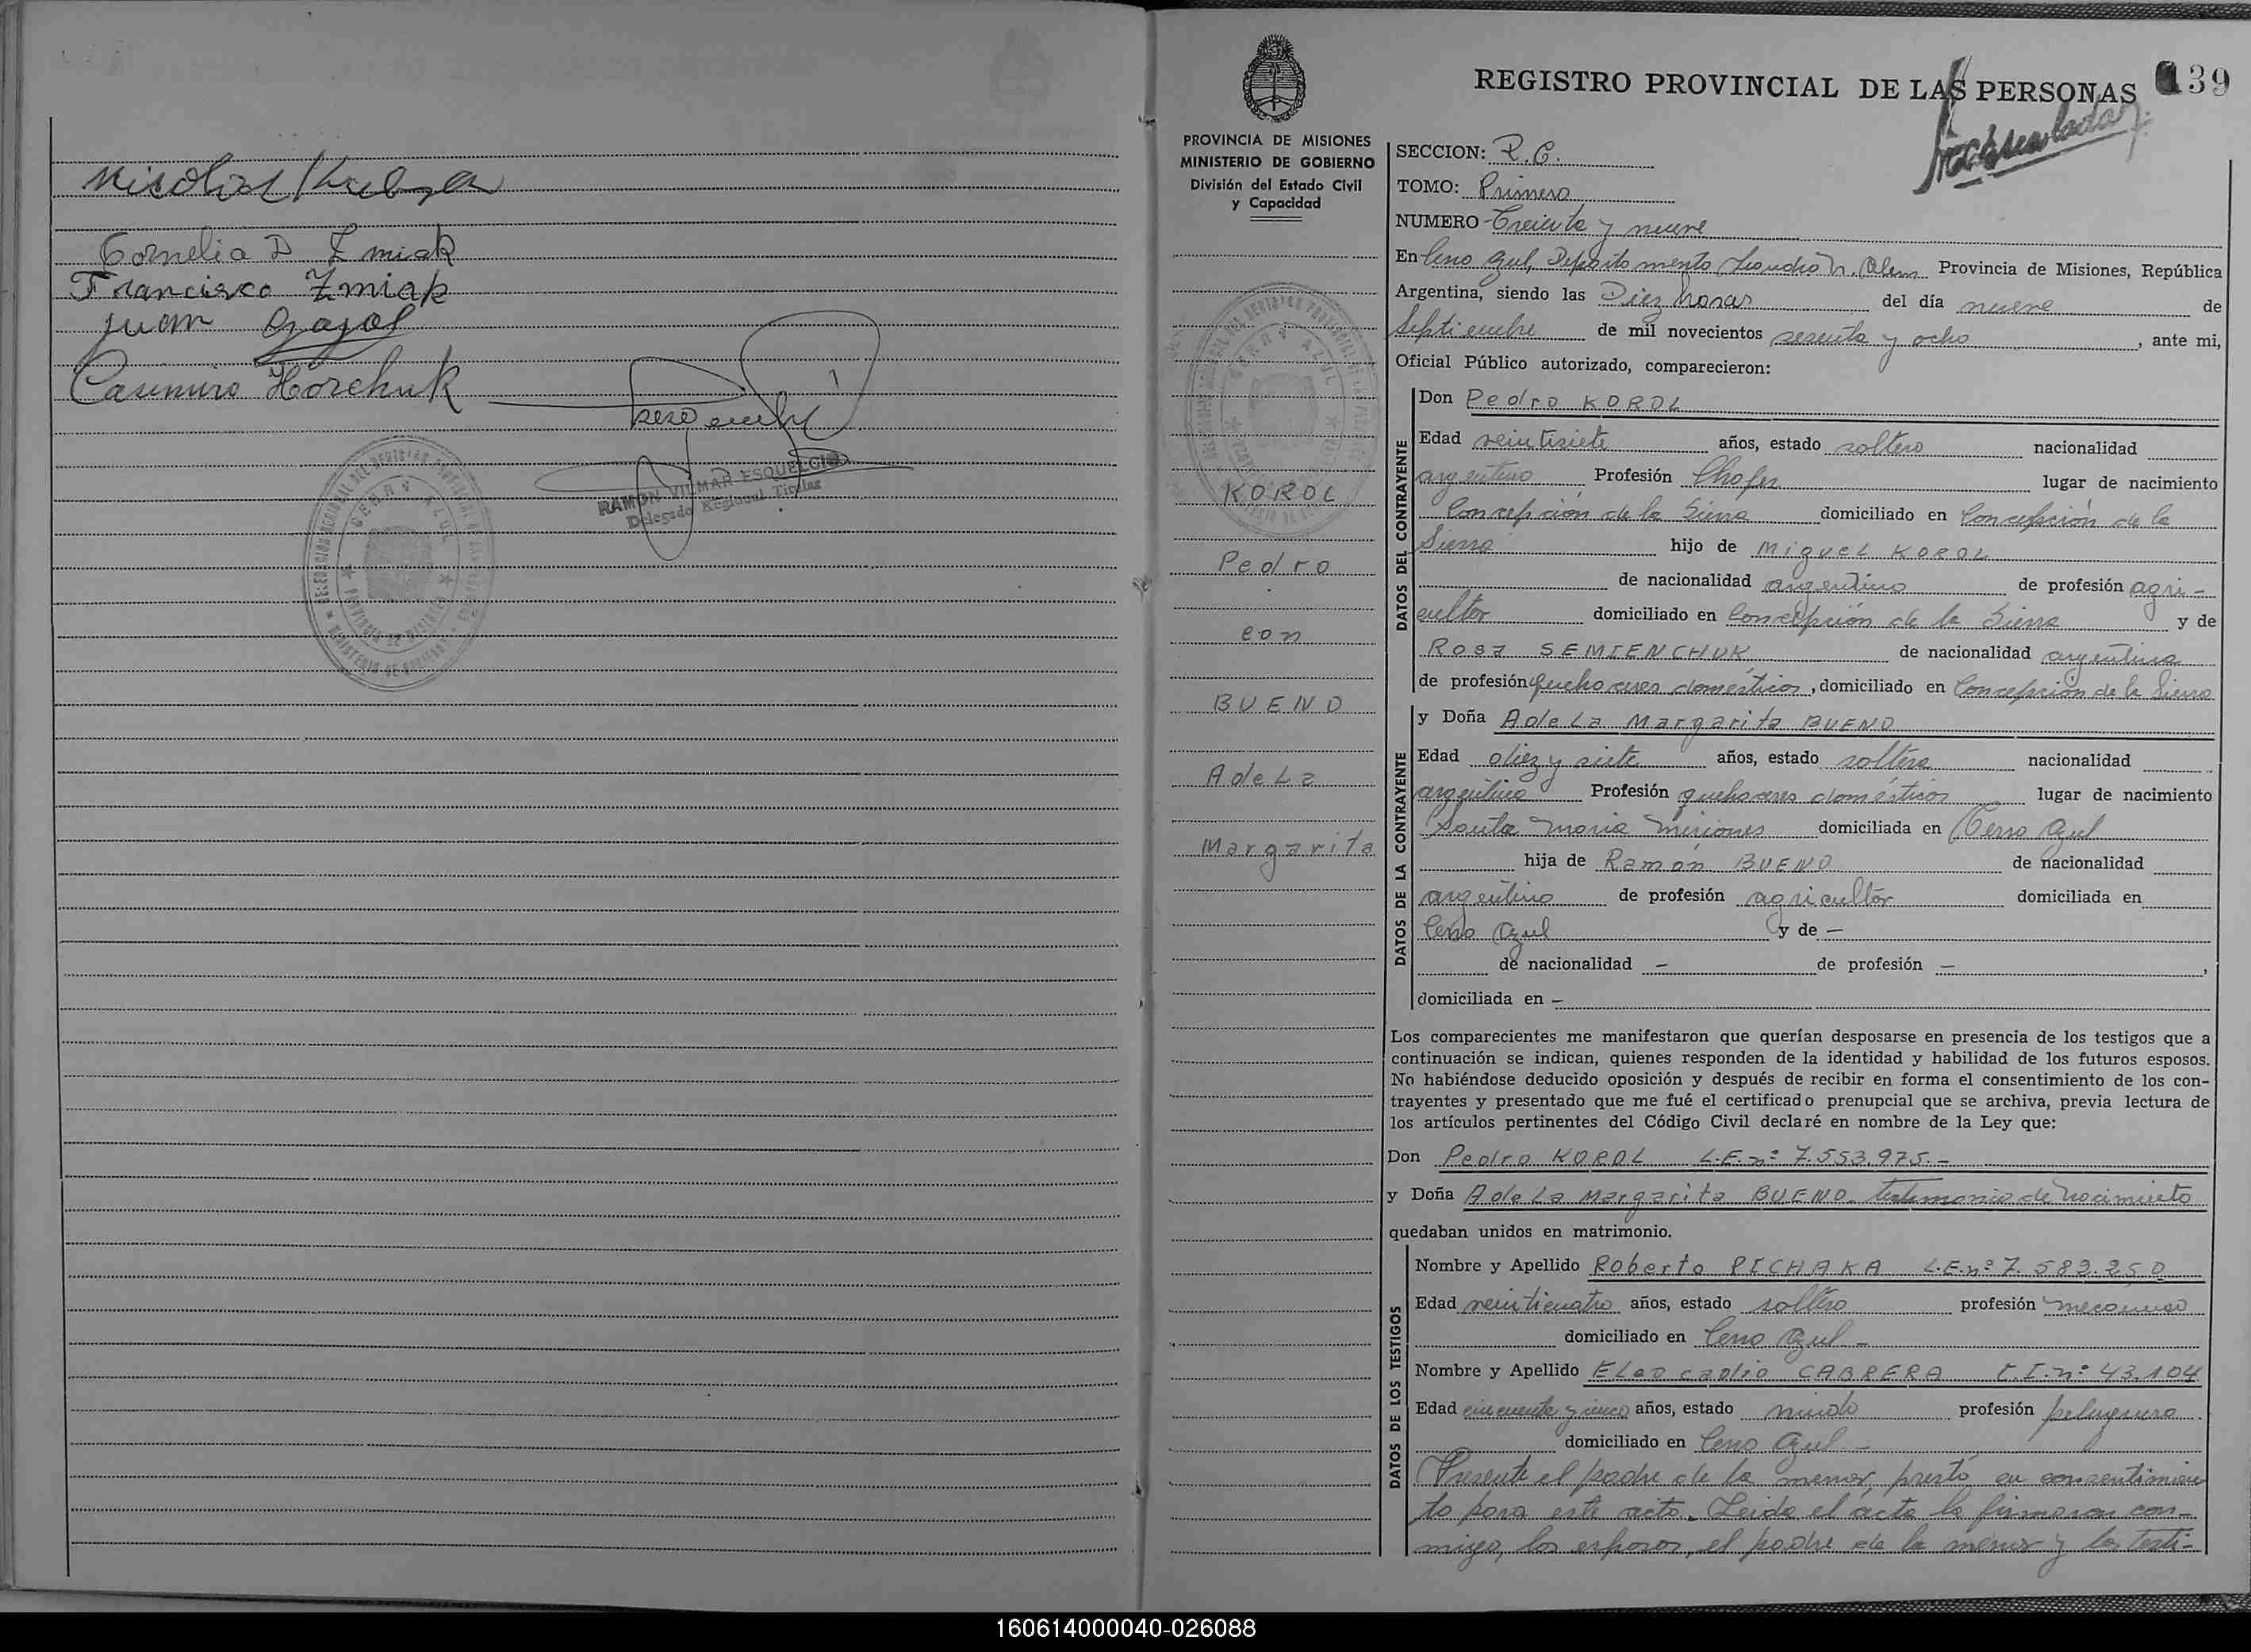 Cornelia D Zmiak
Francisco Zmiak
Juan
Casimiro Horchuk
RAMON VILMAR ESQUELCIO
Delegado Regional Titular
CERRO AZUL
PROVINCIA DE MISIONES
MINISTERIO DE GOBIERNO
División del Estado Civil
y Capacidad
KOROL
Pedro
con
BUENO
Adela
Margarita
REGISTRO PROVINCIAL DE LAS PERSONAS 39
SECCION: R.C.
TOMO: Primero
NUMERO Treinta y nueve
En Cerro Azul, Departamento Leandro N. Alem Provincia de Misiones, República
Argentina, siendo las Diez horas del día nueve de
Septiembre de mil novecientos sesenta y ocho, ante mi,
Oficial Público autorizado, comparecieron:
DATOS DEL CONTRAYENTE
Don Pedro KOROL
Edad veintisiete años, estado soltero nacionalidad
argentino Profesión Chofer lugar de nacimiento
Concepción de la Sierra domiciliado en Concepción de la
Sierra hijo de Miguel KOROL
de nacionalidad argentino de profesión agri-
cultor domiciliado en Concepción de la Sierra y de
Rosa SEMIENCHUK de nacionalidad argentina
de profesión quehaceres domésticos, domiciliado en Concepción de la Sierra
DATOS DE LA CONTRAYENTE
y Doña Adela Margarita BUENO
Edad diez y siete años, estado soltera nacionalidad
argentina Profesión quehaceres domésticos lugar de nacimiento
Santa Maria Misiones domiciliada en Cerro Azul
hija de Ramón BUENO de nacionalidad
argentino de profesión agricultor domiciliada en
Cerro Azul y de —
de nacionalidad — de profesión —,
domiciliada en —
Los comparecientes me manifestaron que querían desposarse en presencia de los testigos que a
continuación se indican, quienes responden de la identidad y habilidad de los futuros esposos.
No habiéndose deducido oposición y después de recibir en forma el consentimiento de los con-
trayentes y presentado que me fué el certificado prenupcial que se archiva, previa lectura de
los artículos pertinentes del Código Civil declaré en nombre de la Ley que:
Don Pedro KOROL L.E.nº 7.553.975.-
y Doña Adela Margarita BUENO testimonio de nacimiento
quedaban unidos en matrimonio.
DATOS DE LOS TESTIGOS
Nombre y Apellido Roberto PICHAKA L.E.nº 7.582.250
Edad veinticuatro años, estado soltero profesión mecanico
domiciliado en Cerro Azul -
Nombre y Apellido Eleocadio CABRERA C.I.nº 43.104
Edad cincuenta y cinco años, estado viudo profesión peluquero
domiciliado en Cerro Azul -
Presente el padre de la menor, prestó su consentimien
to para este acto. Leida el acta la firmaron con-
migo, los esposos, el padre de la menor y los testi-
160614000040-026088